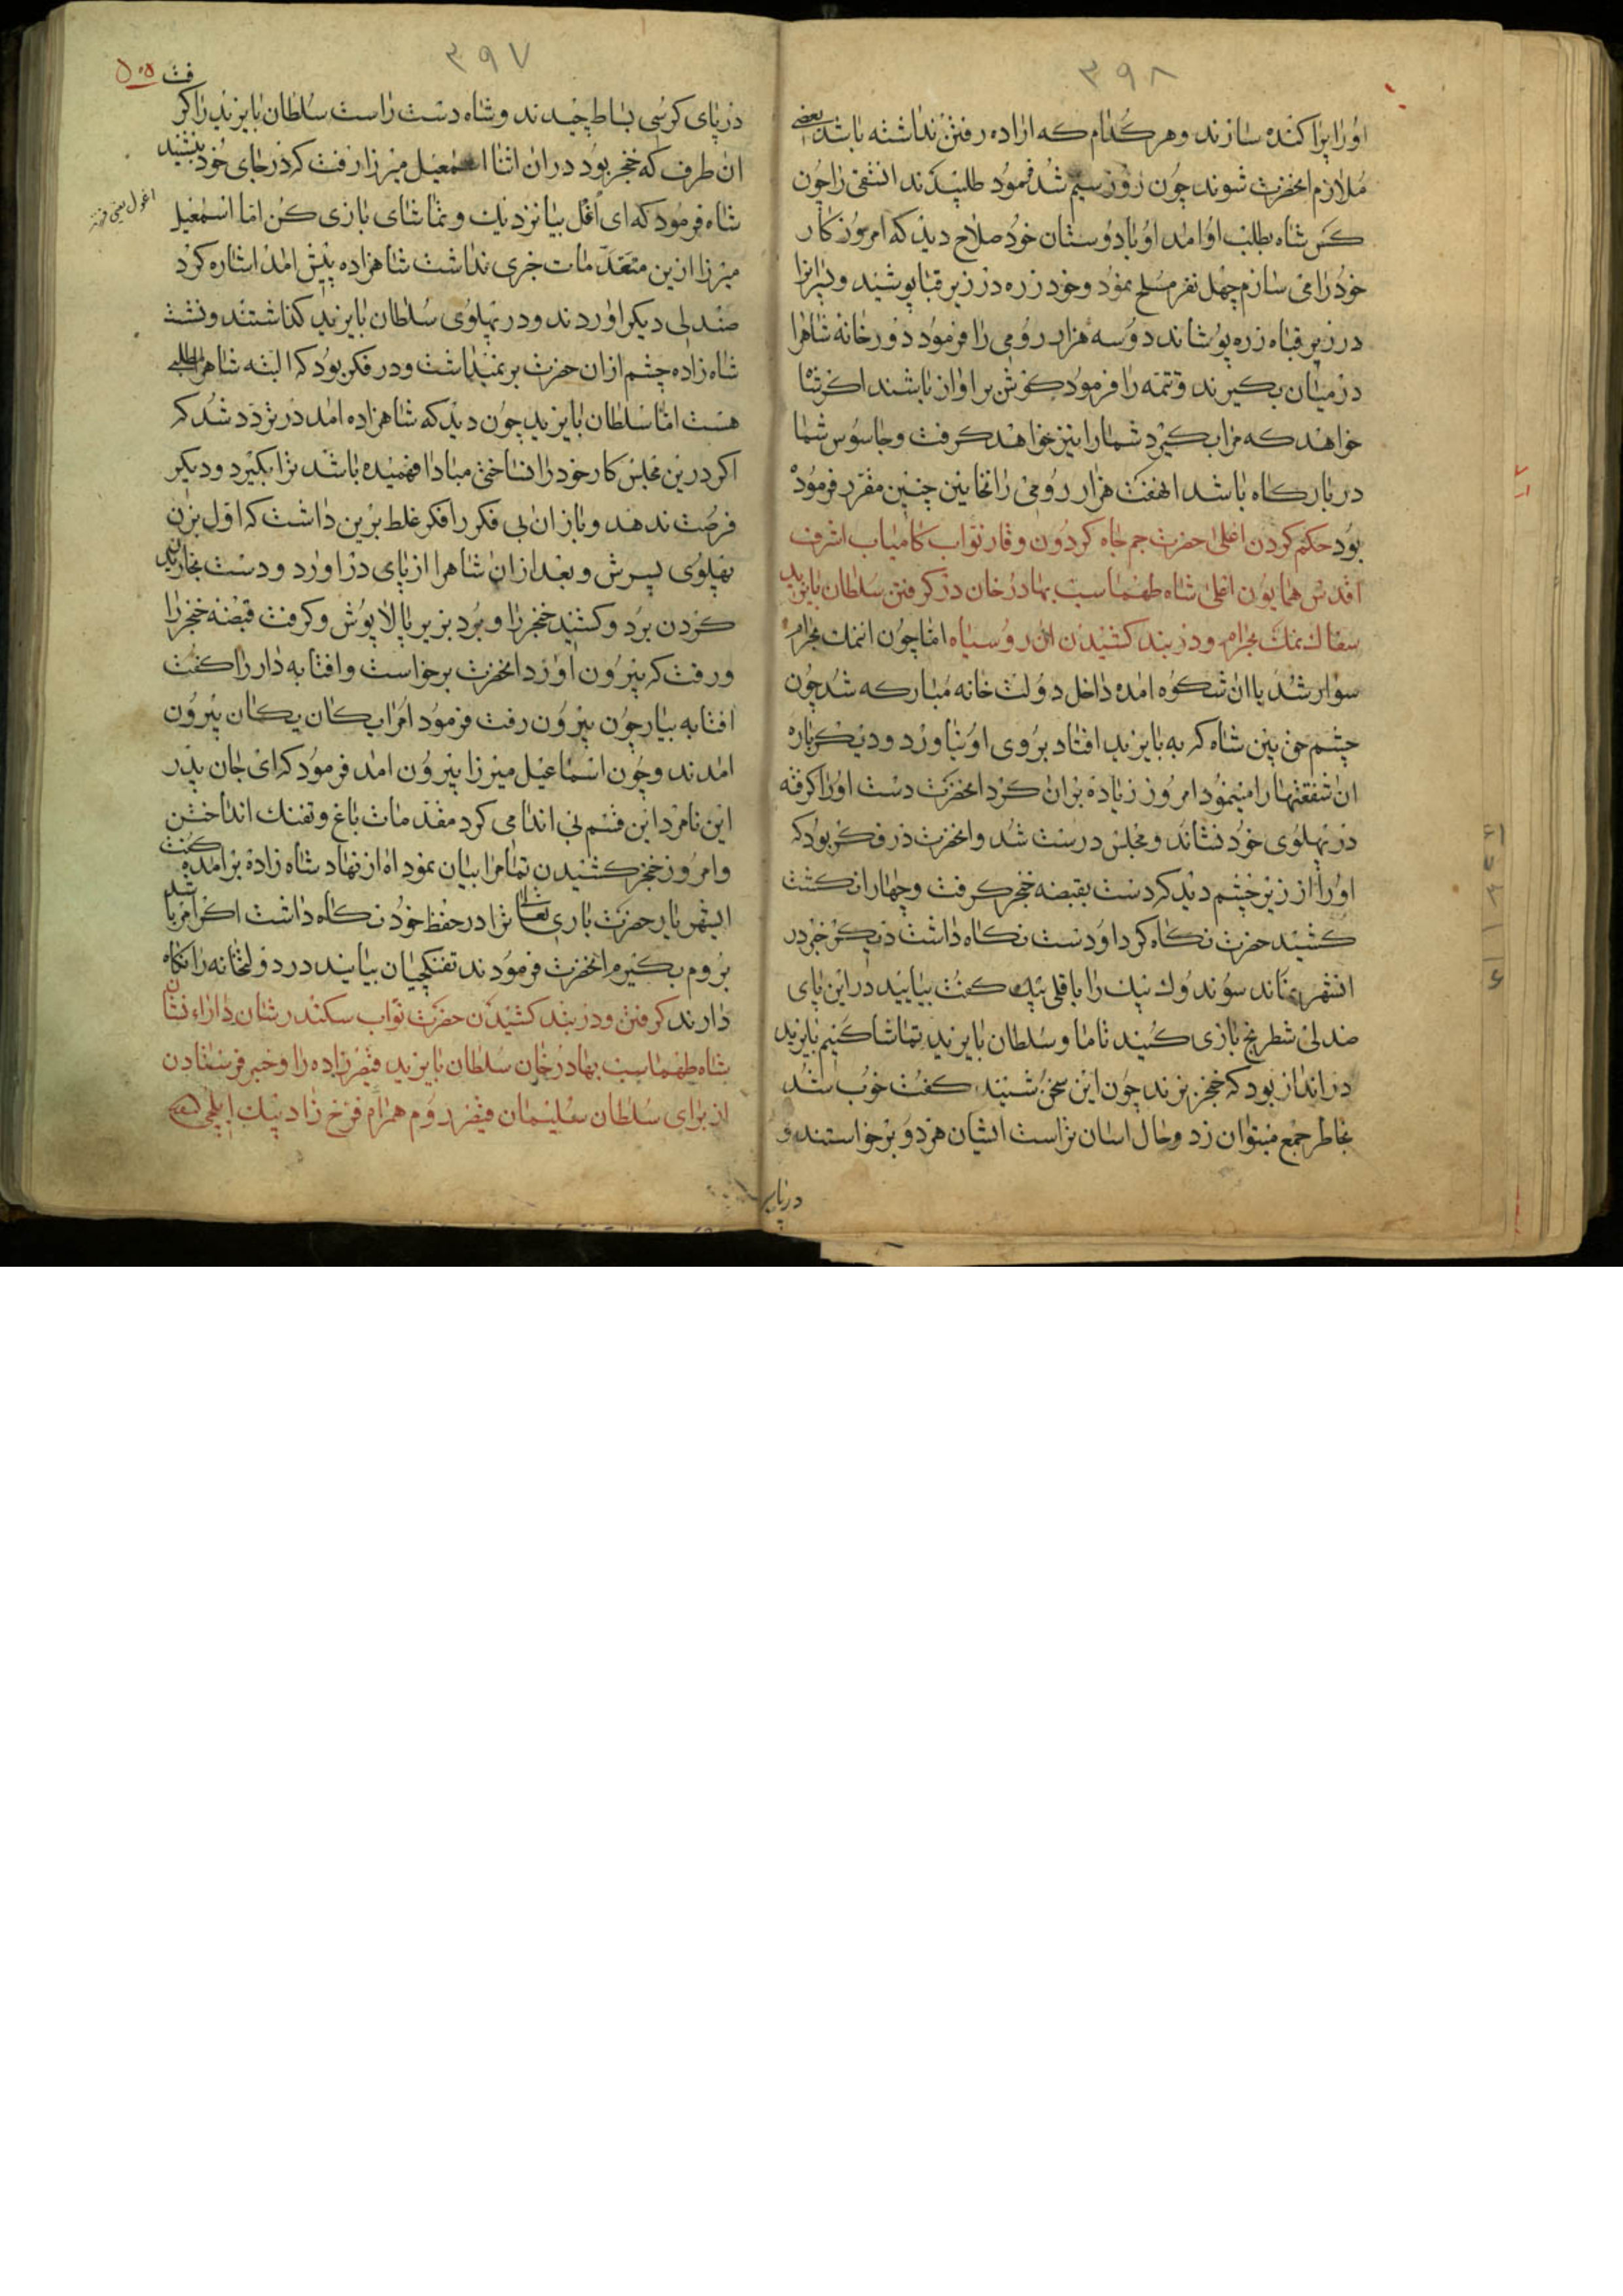 ۳۹۸
اورا پراکنده سازند و هر کدام که اراده رفتن نداشته باشد بعضی
ملازم انحضرت شوند چون روز سیم شد فرمود طلبیدند انشقی را چون
کس شاه بطلب او امد او با دوستان خود صلاح دید که امروز کار
خود را می سازم چهل نفر مسلح نمود و خود زره در زیر قبا پوشید و
در زیر قباه زره پوشاند دو سه هزار رومی را فرمود دور خانه شاهرا
در میان بکیرند و تتمه را فرمود کوش بر اواز باشند اکر شاه
خواهد که مرا بکیرد شما را نیز خواهد کرفت و جاسوس شما
در بارکاه باشد انهفت هزار رومی را چنین مقرر فرموده
بود حکم کردن اعلی حضرت جم جاه کردون وقار نواب کامیاب اشرف
اقدس همایون اعلی شاه طهماسب بهادر خان در کرفتن سلطان بایزید
سفاک نمک بحرام و در بند کشیدن ان رو سیاه اما چون انمک بحرام
سوار شد با ان شکوه امده داخل دولت خانه مبارکه شد چون
چشم حق بین شاه که به بایزید افتاد بروی او نیاورد و دیکر باره
ان شفقتها را مینمود امروز زیاده بر ان کرد انحضرت دست اورا کرفته
در پهلوی خود نشاند و مجلس درست شد و انحضرت در فکر بود که
اورا از زیر چشم دید کرد دست بقبضه خنجر کرفت و چهار ان کشت
کشید حضرت نکاه کرد او دست نکاه داشت دیکر خبر در
انشهر نماند سوندوک بیک را با قلی بیک کفت بیایید در این پای
صندلی شطرنج بازی کنید تا ما و سلطان بایزید تماشا کنیم بایزید
در انداز بود که خنجر بزند چون این سخن شنید کفت خوب شد
بخاطر جمع میتوان زد و حال اسان تر است ایشان هر دو برخواستند و
در پای
۳۹۷
در پای کرسی بساط چیدند و شاه دست راست سلطان بایزید را کر
ان طرف که خنجر بود در ان اثنا اسمعیل میرزا رفت که در جای خود بنشیند
شاه فرمود که ای اغل بیا نزدیک و تماشای بازی کن اما اسمعیل
اغول یعنی
میرزا ازین مقدمات خبری نداشت شاهزاده پیش امد اشاره کرد
صندلی دیکر اوردند و در پهلوی سلطان بایزید کذاشتند و نشست
شاه زاده چشم از ان حضرت بر نمیداشت و در فکر بود که البته شاهرا مطلبی
هست اما سلطان بایزید چون دید که شاهزاده امد در تردد شد که
اکر درین مجلس کار خود را نساختی مبادا فهمیده باشد ترا بکیرد و دیکر
فرصت ندهد و باز ان بی فکر را فکر غلط برین داشت که اول بزن
پهلوی پسرش و بعد از ان شاهرا از پای در اورد و دست
کردن برد و کشید خنجر را و برد بزیر بالاپوش و کرفت قبضه خنجر را
و رفت که بیرون اورد انحضرت برخواست و افتابه دار را کفت
افتابه بیار چون بیرون رفت فرمود امرا یکان یکان بیرون
امدند و چون اسماعیل میرزا بیرون امد فرمود که ای جان پدر
این نامرد این قسم بی اندامی کرد مقدمات باغ و تفنک انداختن
و امروز خنجر کشیدن تمامرا بیان نمود اه از نهاد شاه زاده بر امده کفت
ایشهریار حضرت باری تعالی ترا در حفظ خود نکاه داشت اکر امر باشد
بروم بکیرم انحضرت فرمودند تفنکچیان بیایند در دولتخانه را نکاه
دارند کرفتن و در بند کشیدن حضرت نواب سکندر شان دارا نشان
شاه طهماسب بهادر خان سلطان بایزید قیصر زاده را و خبر فرستادن
از برای سلطان سلیمان قیصر روم همراه فرخ زاد بیک ایلچی